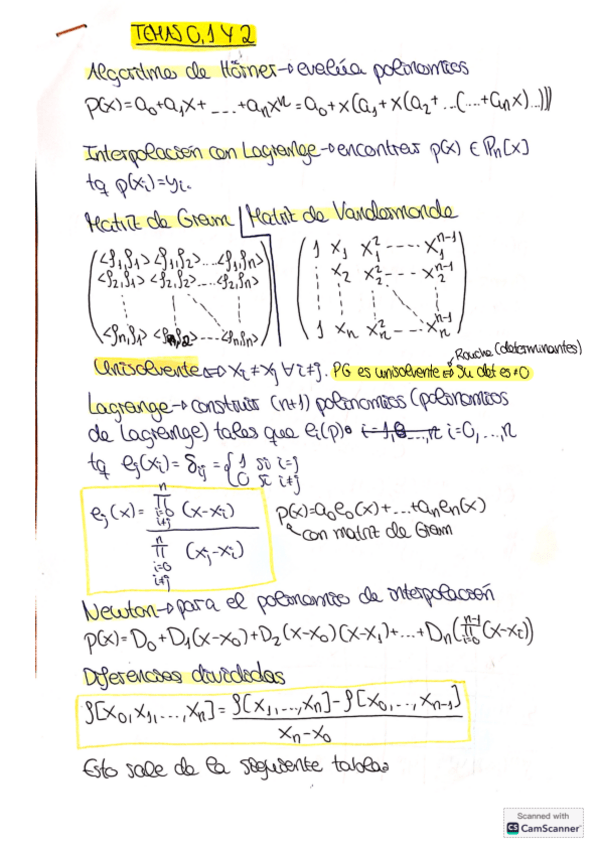 TEMAS 0, 1 Y 2
Algoritmo de Hörner → evalúa polinomios
p(x) = a₀+a₁x+ ---- +aₙxⁿ = a₀+x(a₁+x(a₂+...(...+aₙx)...)))
Interpolación con Lagrange → encontrar p(x) ∈ Pₙ[x]
tq p(xᵢ)=yᵢ.
Matriz de Gram | Matriz de Vandermonde
<f₁,f₁> <f₁,f₂> .... <f₁,fₙ>
<f₂,f₁> <f₂,f₂> .... <f₂,fₙ>
<fₙ,f₁> <fₙ,f₂> .... <fₙ,fₙ>
1 x₁ x₁² ---- x₁ⁿ⁻¹
x₂ x₂² ---- x₂ⁿ⁻¹
1 xₙ xₙ² ---- xₙⁿ⁻¹
Rouche (determinantes)
Unisolvente ⇔ xᵢ ≠ xⱼ ∀ i≠j. PG es unisolvente ⇔ su det es ≠0
Lagrange → construir (n+1) polinomios (polinomios
de Lagrange) tales que eᵢ(p) i=0,...,n
tq eⱼ(xᵢ) = δᵢⱼ = { 1 si i=j
0 si i≠j
eⱼ(x) = ∏ⁿ i=0 i≠j (x-xᵢ) / ∏ⁿ i=0 i≠j (xⱼ-xᵢ)
p(x)=a₀e₀(x)+...+aₙeₙ(x)
con matriz de Gram
Newton → para el polinomio de interpolación
p(x)=D₀+D₁(x-x₀)+D₂(x-x₀)(x-x₁)+...+Dₙ(∏ⁿ⁻¹ i=0 (x-xᵢ))
Diferencias divididas
f[x₀,x₁,...,xₙ] = f[x₁,...,xₙ]-f[x₀,...,xₙ₋₁] / xₙ-x₀
Esto sale de la siguiente tabla:
Scanned with
CS CamScanner